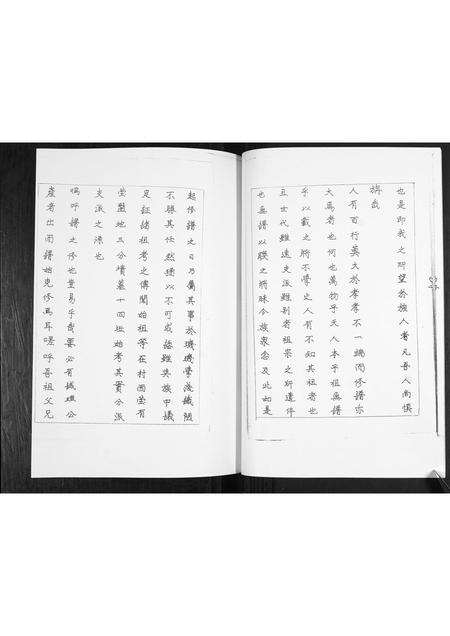 也是即我之所望於族人者凡吾人尚慎
旃哉
人有百行莫大於孝孝不一端而修譜亦
大焉者也何也萬物乎天人本乎祖無譜
乎以載之將不學之人有不知其祖者也
且世代雖遠支派雖別者祖宗之所遺倘
也無譜以聯之將昧今族眾念及此如是
起修譜之日乃屬其事於璣璣學淺識陋
不勝其任然猶以不可或諉雖其族中議
足征諸祖考之傳聞始祖等在村西塋有
塋盤地三分墳墓十四坵始考其實分派
支派之源也
嗚呼譜之修也豈易乎哉要必有攄理公
產者出而譜始克修焉耳嗟呼吾祖父兄